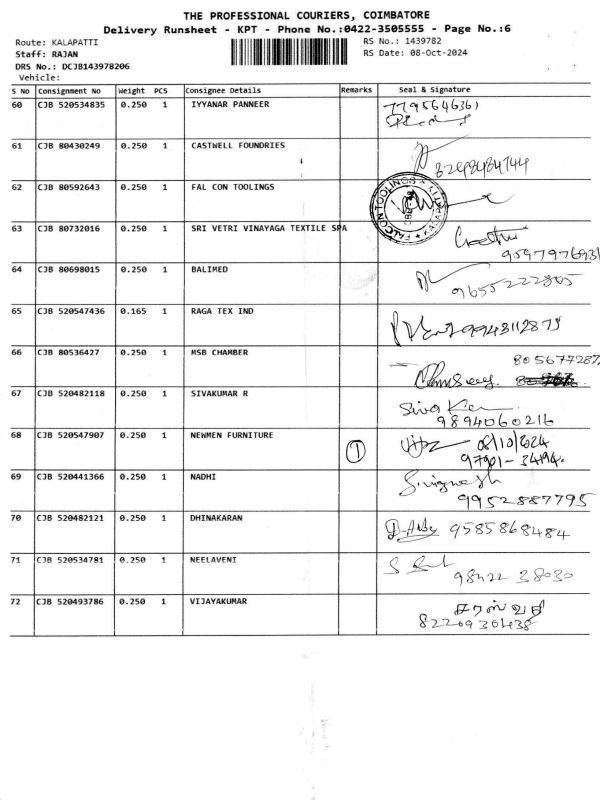 THE PROFESSIONAL COURIERS, COIMBATORE
Delivery Runsheet - KPT - Phone No.:0422-3505555 - Page No.:6
Route: KALAPATTI RS No.: 1439782
Staff: RAJAN RS Date: 08-Oct-2024
DRS No.: DCJB143978206
Vehicle:
S No Consignment No Weight PCS Consignee Details Remarks Seal & Signature
60 CJB 520534835 0.250 1 IYYANAR PANNEER 7795646361
61 CJB 80430249 0.250 1 CASTWELL FOUNDRIES
62 CJB 80592643 0.250 1 FAL CON TOOLINGS FALCON TOOLINGS
63 CJB 80732016 0.250 1 SRI VETRI VINAYAGA TEXTILE SPA 9597976931
64 CJB 80698015 0.250 1 BALIMED 9655222805
65 CJB 520547436 0.165 1 RAGA TEX IND 9943112879
66 CJB 80536427 0.250 1 MSB CHAMBER 805677287
67 CJB 520482118 0.250 1 SIVAKUMAR R Siva
9894060216
68 CJB 520547907 0.250 1 NEWMEN FURNITURE 1 08/10/2024
97901-34194
69 CJB 520441366 0.250 1 NADHI
9952887795
70 CJB 520482121 0.250 1 DHINAKARAN 9585868484
71 CJB 520534781 0.250 1 NEELAVENI
98422 38030
72 CJB 520493786 0.250 1 VIJAYAKUMAR சரஸ்வதி
8220930438